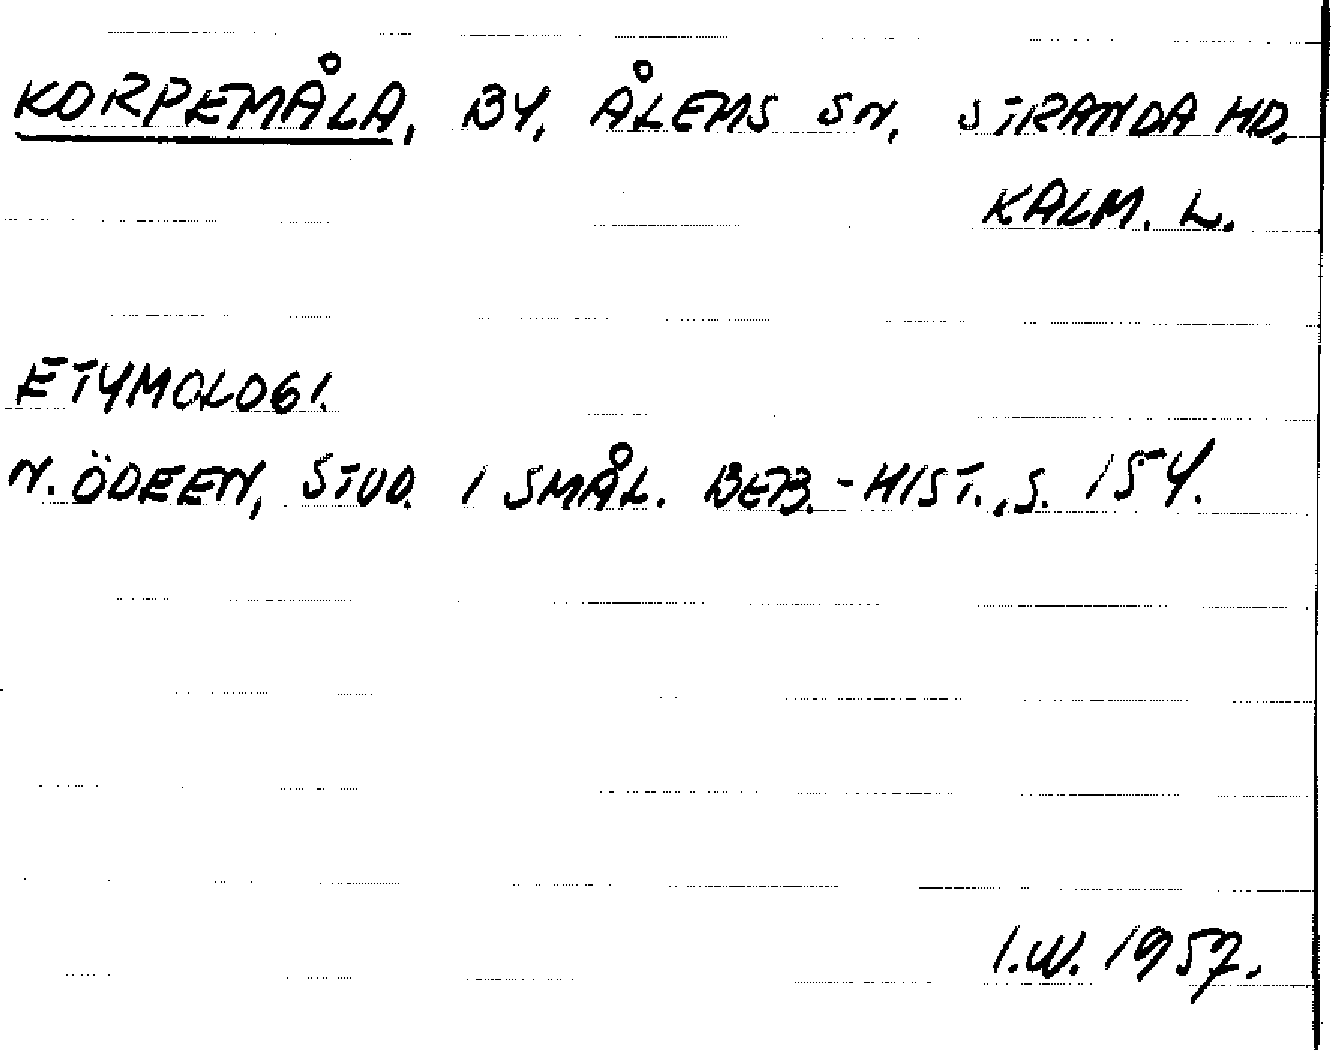 KORPEMÅLA, BY, ÅLEMS SN, STRANDA HD.
KALM. L.
ETYMOLOGI.
N. ÖDEEN, STUD. I SMÅL. BEB.-HIST., S. 154.
I.W. 1957.